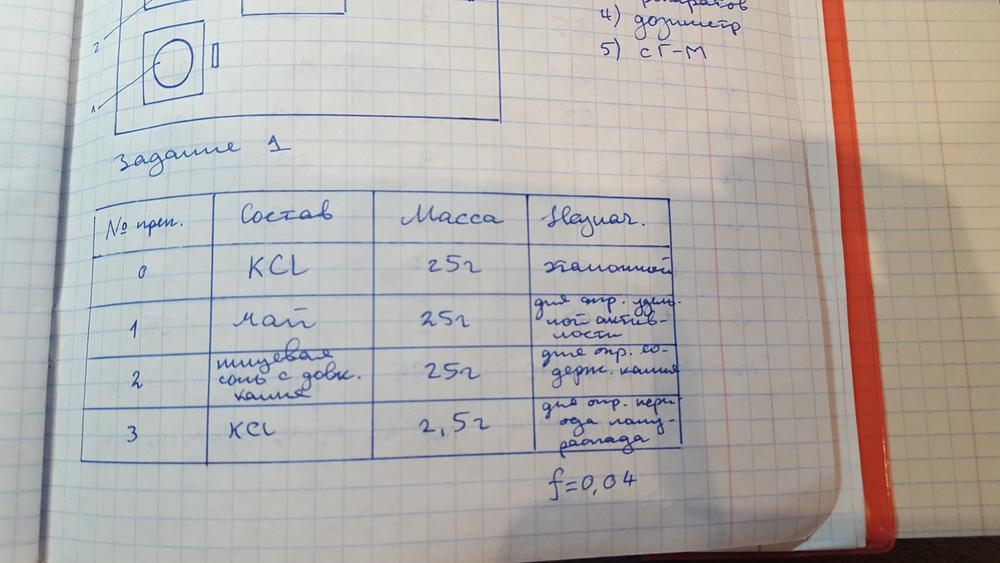 паратов
4) дозиметр
5) СГ-М
2
1
Задание 1
№ преп.
Состав
Масса
Назнач.
0
KCL
25г
эталонной
1
чай
25г
для опр. удель-
ной актив-
ности
2
пищевая
соль с довк.
калия
25г
для опр. со-
держ. калия
3
KCL
2,5г
для опр. пери-
ода полу-
распада
f=0,04